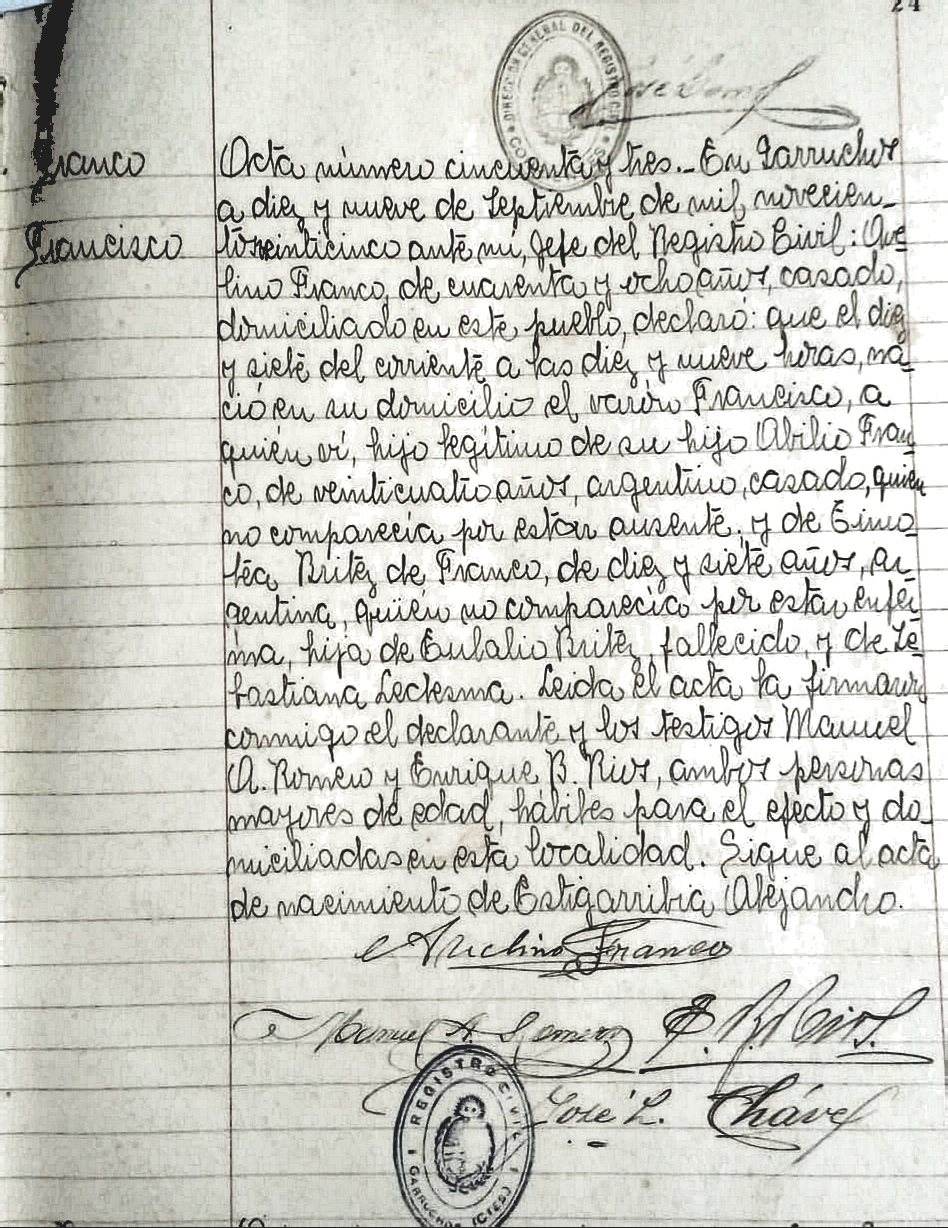 24
DIRECCION GENERAL DEL REGISTRO CIVIL
José
Franco
Francisco
Acta número cincuenta y tres._ En Garruchos
a diez y nueve de Septiembre de mil novecien_
tos veinticinco ante mi, Jefe del Registro Civil: Ave
lino Franco, de cuarenta y ocho años, casado,
domiciliado en este pueblo, declaró: que el diez
y siete del corriente a las diez y nueve horas, na_
ció en su domicilio el varón Francisco, a
quién ví, hijo legítimo de su hijo Abilio Fran
co, de veinticuatro años, argentino, casado, quién
no comparecía por estar ausente, y de Timo
tea Britez de Franco, de diez y siete años, ar
gentina, quién no comparecía por estar enfer
ma, hija de Eulalio Britez, fallecido, y de Se
bastiana Ledesma. Leida el acta la firmaron
conmigo el declarante y los testigos Manuel
A. Romero y Enrique B. Rios, ambos personas
mayores de edad, hábiles para el efecto y do_
miciliadas en esta localidad. Sigue al acta
de nacimiento de Estigarribia Alejandro.
Avelino Franco
Manuel A. Romero E. B. Rios.
José L. Chávez
REGISTRO CIVIL
GARRUCHOS (CTES.)